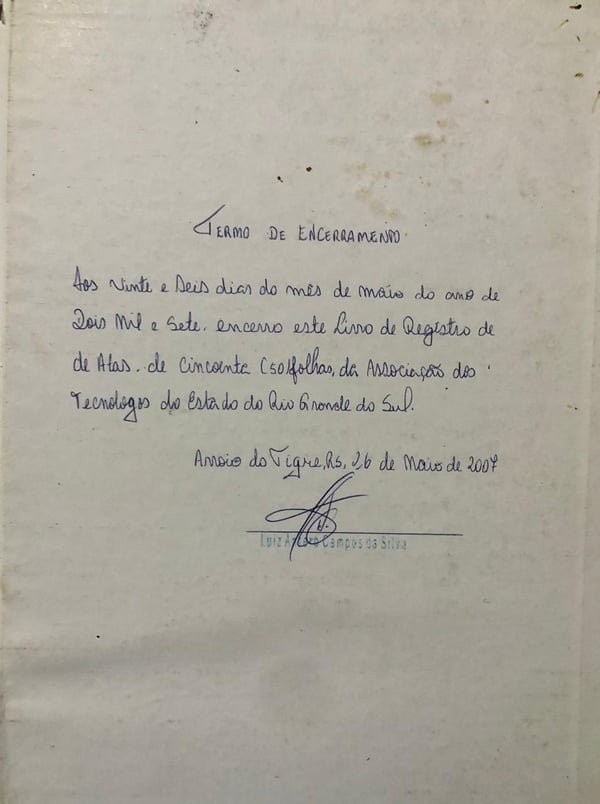 TERMO DE ENCERRAMENTO.
Aos vinte e Seis dias do mês de maio do ano de
Dois Mil e Sete. encerro este Livro de Registro de
de Atas. de Cincoenta (50) folhas, da Associação dos
Tecnologos do Estado do Rio Grande do Sul.
Arroio do Tigre, RS, 26 de Maio de 2007
Luiz Campos da Silva